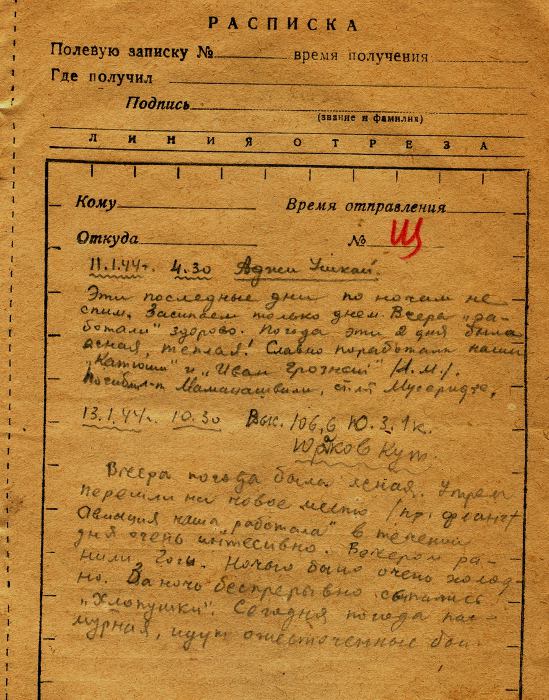 РАСПИСКА
Полевую записку № время получения
Где получил
Подпись
(звание и фамилия)
ЛИНИЯ ОТРЕЗА
Кому Время отправления
Откуда №
11.1.44г. 4.30 Аджи Ушкай.
Эти последные дни по ночам не
спим. Засипаем только днем. Вчера „ра-
ботали" здорово. Погода эти 2 дня была
ясная, теплая! Славно поработали наши
„Катюши" и „Иван Грозный" /И.М./.
Погибли Маманашвили, ст. л-т
13.1.44г. 10.30 Выс. 106,6 Ю.З. 1к.
Юрков Кут.
Вчера погода была ясная. Утрем
перешли на новое место /пр. фланг/
Авиация наша „работала" в течении
дня очень интесивно. Вечером ра-
нили Гоги. Ночью было очень холод-
но. За ночь беспрерывно сыпались
„Хлопушки". Сегодня погода пас-
мурная, идут ожесточенные бои.